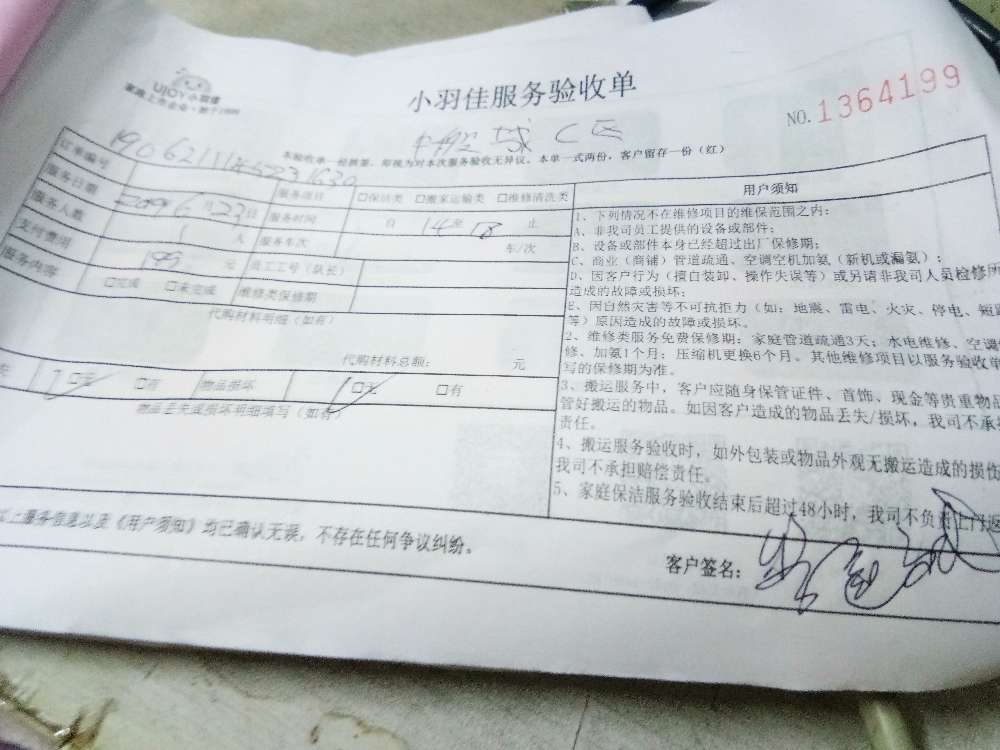 UIOY小羽佳
家政上市企业·
小羽佳服务验收单
NO.1364199
本验收单一经携签,即视为对本次服务验收无异议,本单一式两份,客户留存一份(红)
订单编号
服务日期 6月23日
服务项目 □保洁类 □搬家运输类 □维修清洗类
服务人数 1 人
服务时间 自 14至18 止
支付费用 199 元
服务车次 车/次
服务内容 □完成 □未完成
员工工号(队长)
维修类保修期
代购材料明细(如有)
代购材料总额: 元
□无 □有 物品损坏 □无 □有
物品丢失或损坏明细填写(如有)
上服务信息以及《用户须知》均已确认无误,不存在任何争议纠纷。
客户签名:
用户须知
1、下列情况不在维修项目的维保范围之内:
A、非我司员工提供的设备或部件;
B、设备或部件本身已经超过出厂保修期;
C、商业(商铺)管道疏通、空调空机加氨(新机或漏氨);
D、因客户行为(擅自装卸、操作失误等)或另请非我司人员检修所
造成的故障或损坏;
E、因自然灾害等不可抗拒力(如:地震、雷电、火灾、停电、短路
等)原因造成的故障或损坏。
2、维修类服务免费保修期:家庭管道疏通3天;水电维修、空调
修、加氨1个月;压缩机更换6个月。其他维修项目以服务验收单
写的保修期为准。
3、搬运服务中,客户应随身保管证件、首饰、现金等贵重物品
管好搬运的物品。如因客户造成的物品丢失/损坏,我司不承担
责任。
4、搬运服务验收时,如外包装或物品外观无搬运造成的损伤
我司不承担赔偿责任。
5、家庭保洁服务验收结束后超过48小时,我司不负责上门返